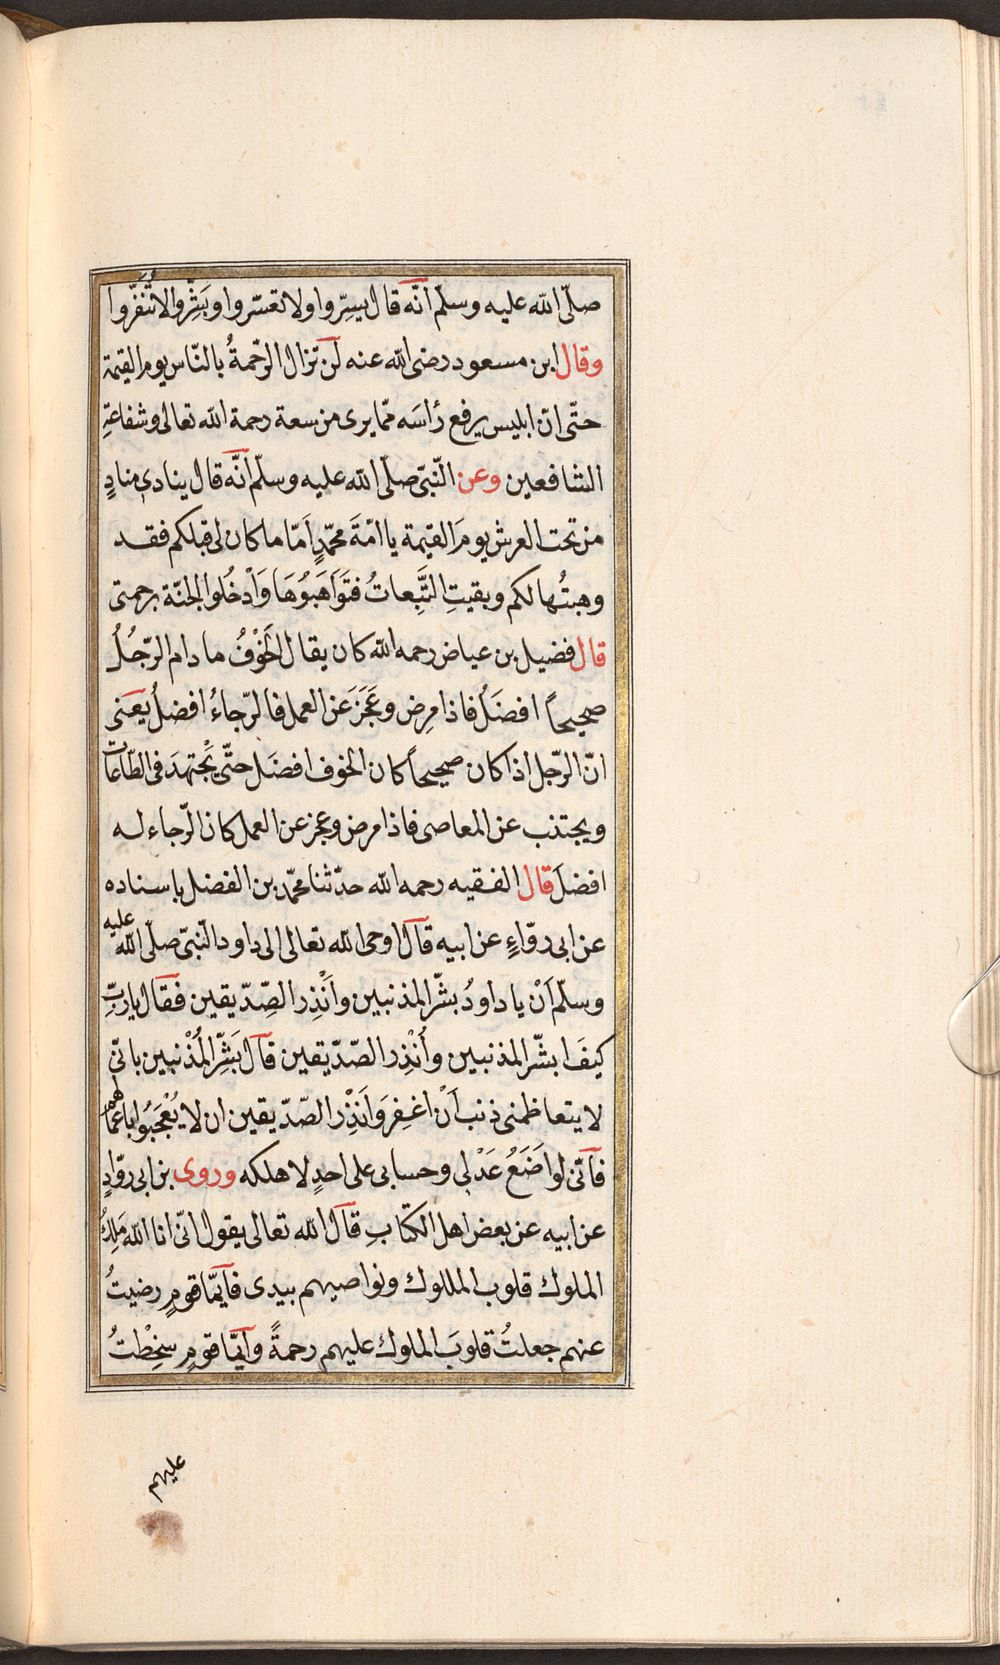 صلّى الله عليه وسلّم انّه قال يسِّروا ولا تعسّروا وبَشِّروا ولا تنفّروا
وقال ابن مسعود رضى الله عنه لن تزال الرّحمةُ بالنّاس يوم القيمة
حتّى انّ ابليس يرفع رأسَه ممّا يرى من سعة رحمة الله تعالى وشفاعةِ
الشافعين وعن النّبىّ صلّى الله عليه وسلّم انّه قال ينادى منادٍ
من تحت العرش يومَ القيمة يا امّةَ محمّدٍ اَمّا ما كان لى قبلكم فقد
وهبتُها لكم وبقيتِ التَّبِعاتُ فتَوَاهَبُوهَا وَادْخُلوا الجنّة برحمتى
قال فضيل بن عياض رحمه الله كان يقال الخَوْفُ ما دام الرّجُلُ
صحيحاً افضَلُ فاذا مرِض وعَجَزَ عَن العمل فالرّجاءُ افضلُ يعَنى
انّ الرّجل اذا كان صحيحاً كان الخوف افضَل حتّى يجْتهدَ فى الطّاعات
ويجتنب عن المعاصى فاذا مرض وعجز عن العمل كان الرّجاء له
افضلَ قال الفقيه رحمه الله حدّثنا محمّد بن الفضل باسناده
عن ابى روّاءٍ عن ابيه قال اوحى الله تعالى الى داود النّبىّ صلّى الله عليه
وسلّم اَنْ يا داودُ بشّر المذنبين وأنْذِر الصِّدّيقين فقال يا ربِّ
كيفَ ابشّر المذنبين وأنْذِر الصّدّيقين قال بَشِّر المُذْنبين بانّى
لا يتعاظمنى ذنب اَنْ اغفِر وَانْذِر الصّدّيقين ان لا يُعْجَبُوا باعمالهم
فانّى لو اَضَعُ عَدْلى وحسابى على احدٍ لاهلكه وروى بن ابى روّادٍ
عن ابيه عن بعض اهل الكتابِ قال الله تعالى يقول انّى انا الله مَلِكُ
الملوك قلوب الملوك ونواصيهم بيدى فايّما قومٍ رضيتُ
عنهم جعلتُ قلوبَ الملوك عليهم رحمةً وايّما قومٍ سخِطْتُ
عليهم